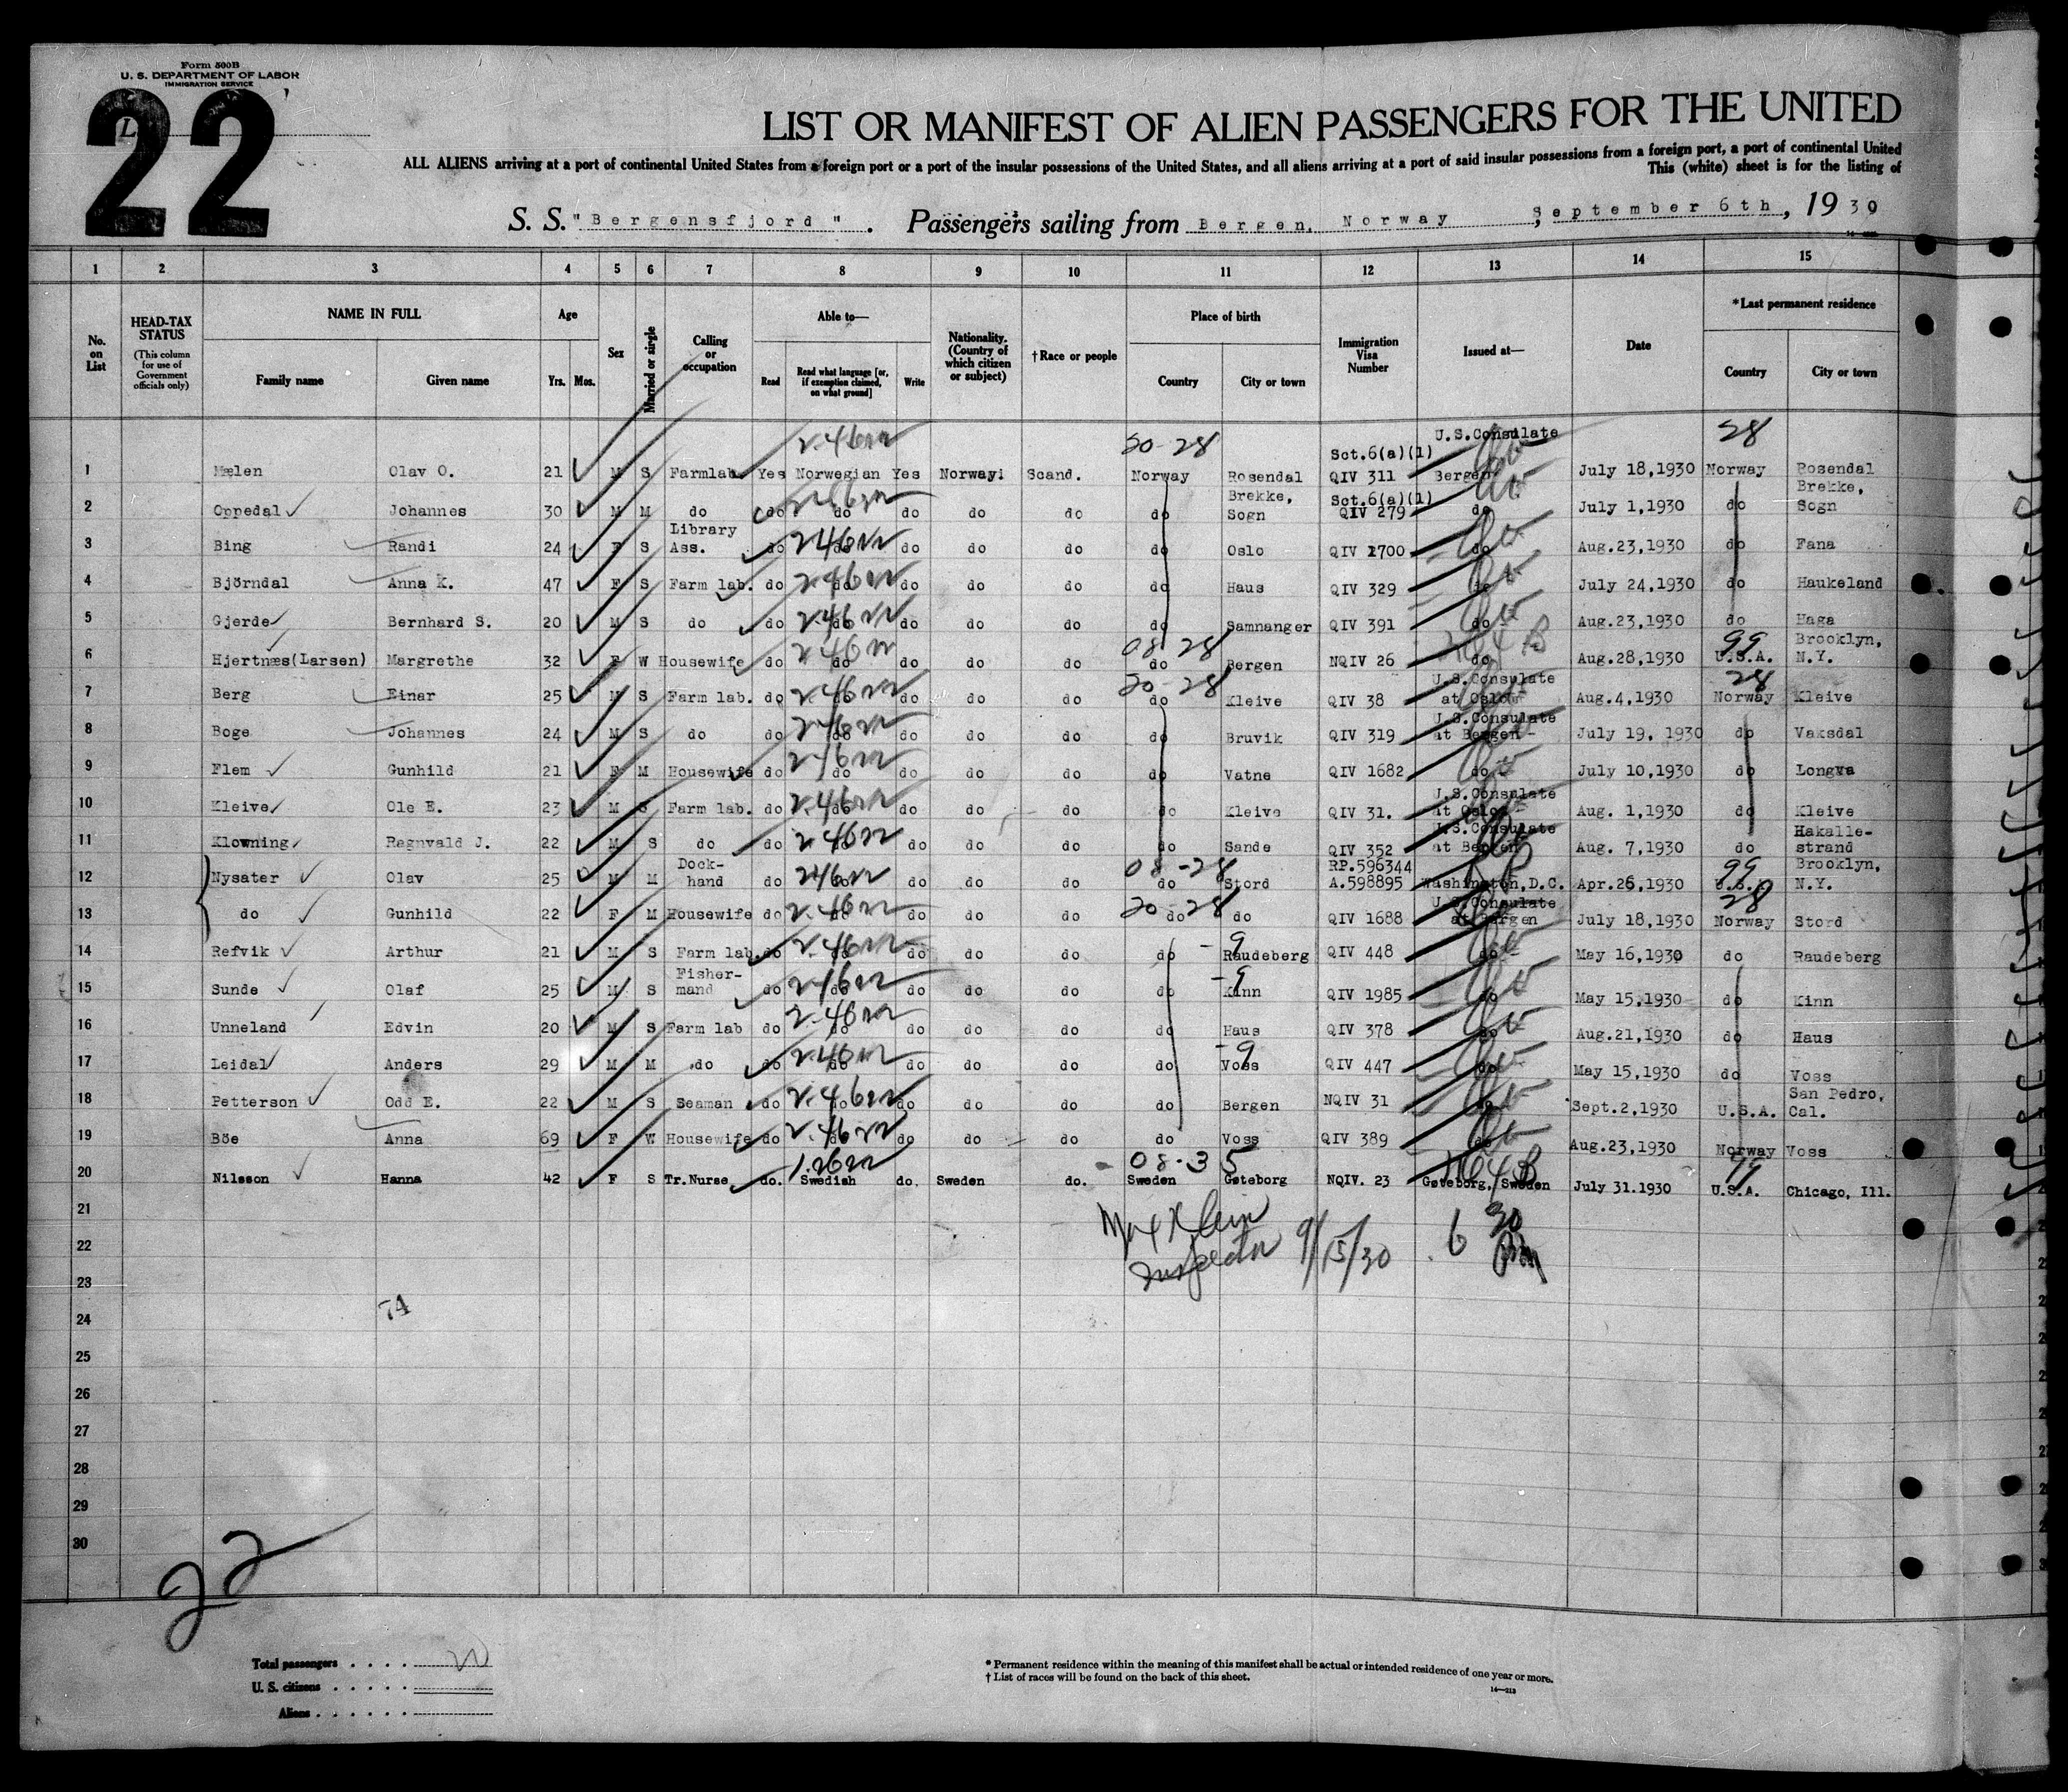 Form 500B
U. S. DEPARTMENT OF LABOR
IMMIGRATION SERVICE
22
LIST OR MANIFEST OF ALIEN PASSENGERS FOR THE UNITED
ALL ALIENS arriving at a port of continental United States from a foreign port or a port of the insular possessions of the United States, and all aliens arriving at a port of said insular possessions from a foreign port, a port of continental United
This (white) sheet is for the listing of
S. S. "Bergensfjord". Passengers sailing from Bergen, Norway, September 6th, 1930
1 2 3 4 5 6 7 8 9 10 11 12 13 14 15
No. on List
HEAD-TAX STATUS (This column for use of Government officials only)
NAME IN FULL Family name Given name
Age Yrs. Mos.
Sex
Married or single
Calling or occupation
Able to— Read Read what language [or, if exemption claimed, on what ground] Write
Nationality. (Country of which citizen or subject)
†Race or people
Place of birth Country City or town
Immigration Visa Number
Issued at—
Date
*Last permanent residence Country City or town
20-28 28
1 Mælen Olav O. 21 M S Farmlab. Yes Norwegian Yes Norway Scand. Norway Rosendal Sct.6(a)(1) QIV 311 U.S.Consulate Bergen July 18,1930 Norway Rosendal
2 Oppedal Johannes 30 M M do do do do do do do Brekke, Sogn Sct.6(a)(1) QIV 279 do July 1,1930 do Brekke, Sogn
3 Bing Randi 24 F S Library Ass. do do do do do do Oslo QIV 1700 do Aug.23,1930 do Fana
4 Björndal Anna K. 47 F S Farm lab. do do do do do do Haus QIV 329 do July 24,1930 do Haukeland
5 Gjerde Bernhard S. 20 M S do do do do do do do Samnanger QIV 391 do Aug.23,1930 do Haga
08-28 99
6 Hjertnæs(Larsen) Margrethe 32 F W Housewife do do do do do do Bergen NQIV 26 do Aug.28,1930 U.S.A. Brooklyn, N.Y.
20-28 28
7 Berg Einar 25 M S Farm lab. do do do do do do Kleive QIV 38 U.S.Consulate at Oslo Aug.4,1930 Norway Kleive
8 Boge Johannes 24 M S do do do do do do do Bruvik QIV 319 U.S.Consulate at Bergen July 19, 1930 do Vaksdal
9 Flem Gunhild 21 F M Housewife do do do do do do Vatne QIV 1682 do July 10,1930 do Longva
10 Kleive Ole E. 23 M S Farm lab. do do do do do do Kleive QIV 31. U.S.Consulate at Oslo Aug. 1,1930 do Kleive
11 Klowning Regnvald J. 22 M S do do do do do do do Sande QIV 352 U.S.Consulate at Bergen Aug. 7,1930 do Hakallestrand
08-28 99
12 Nysater Olav 25 M M Dock-hand do do do do do do Stord RP.596344 A.598895 Washington,D.C. Apr.26,1930 U.S.A. Brooklyn, N.Y.
20-28 28
13 do Gunhild 22 F M Housewife do do do do do do do QIV 1688 U.S.Consulate at Bergen July 18,1930 Norway Stord
14 Refvik Arthur 21 M S Farm lab. do do do do do do Raudeberg QIV 448 do May 16,1930 do Raudeberg
15 Sunde Olaf 25 M S Fisher-mand do do do do do do Kinn QIV 1985 do May 15,1930 do Kinn
16 Unneland Edvin 20 M S Farm lab do do do do do do Haus QIV 378 do Aug.21,1930 do Haus
17 Leidal Anders 29 M M do do do do do do do Voss QIV 447 do May 15,1930 do Voss
18 Petterson Odd E. 22 M S Seaman do do do do do do Bergen NQIV 31 do Sept.2,1930 U.S.A. San Pedro, Cal.
19 Böe Anna 69 F W Housewife do do do do do do Voss QIV 389 do Aug.23,1930 Norway Voss
08-35 99
20 Nilsson Hanna 42 F S Tr.Nurse do. Swedish do. Sweden do. Sweden Gøteborg NQIV. 23 Gøteborg, Sweden July 31.1930 U.S.A. Chicago, Ill.
21
22
23
24
25
26
27
28
29
30
Max Klein
Inspector 9/15/30
74
22
Total passengers
U. S. citizens
Aliens
* Permanent residence within the meaning of this manifest shall be actual or intended residence of one year or more.
† List of races will be found on the back of this sheet.
14—213